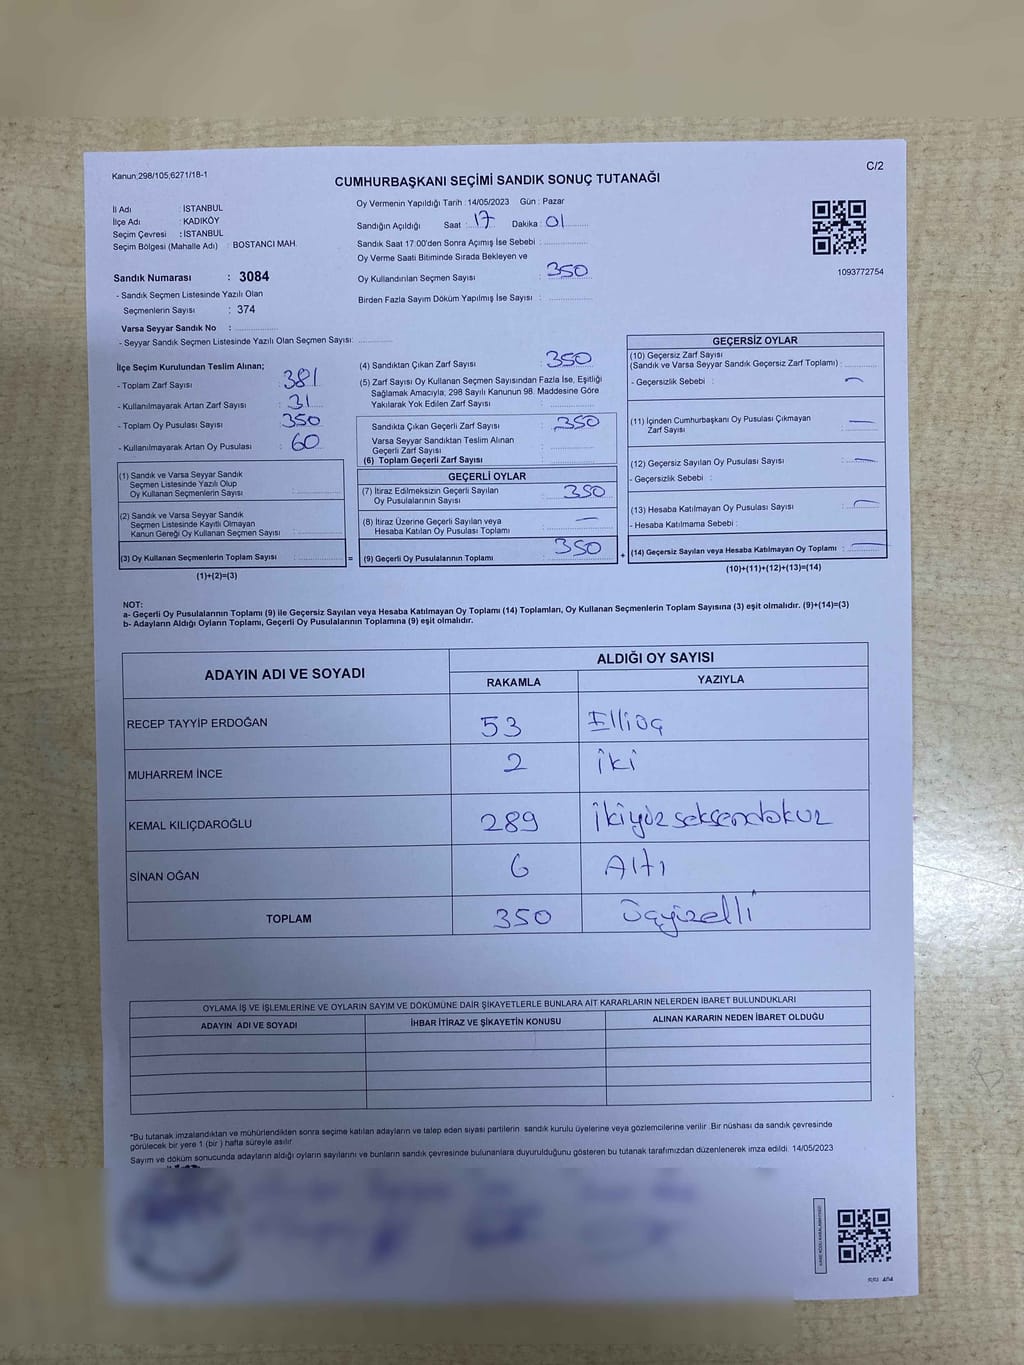 Kanun;298/105;6271/18-1
C/2
CUMHURBAŞKANI SEÇİMİ SANDIK SONUÇ TUTANAĞI
İl Adı : İSTANBUL
İlçe Adı : KADIKÖY
Seçim Çevresi : İSTANBUL
Seçim Bölgesi (Mahalle Adı) : BOSTANCI MAH.
Sandık Numarası : 3084
- Sandık Seçmen Listesinde Yazılı Olan
Seçmenlerin Sayısı : 374
Varsa Seyyar Sandık No :
- Seyyar Sandık Seçmen Listesinde Yazılı Olan Seçmen Sayısı:
Oy Vermenin Yapıldığı Tarih : 14/05/2023 Gün : Pazar
Sandığın Açıldığı Saat : 17 Dakika : 01
Sandık Saat 17:00'den Sonra Açılmış İse Sebebi :
Oy Verme Saati Bitiminde Sırada Bekleyen ve
Oy Kullandırılan Seçmen Sayısı : 350
Birden Fazla Sayım Döküm Yapılmış İse Sayısı :
1093772754
İlçe Seçim Kurulundan Teslim Alınan;
- Toplam Zarf Sayısı : 381
- Kullanılmayarak Artan Zarf Sayısı : 31
- Toplam Oy Pusulası Sayısı : 350
- Kullanılmayarak Artan Oy Pusulası : 60
(1) Sandık ve Varsa Seyyar Sandık
Seçmen Listesinde Yazılı Olup
Oy Kullanan Seçmenlerin Sayısı :
(2) Sandık ve Varsa Seyyar Sandık
Seçmen Listesinde Kayıtlı Olmayan
Kanun Gereği Oy Kullanan Seçmen Sayısı :
(3) Oy Kullanan Seçmenlerin Toplam Sayısı :
(1)+(2)=(3)
(4) Sandıktan Çıkan Zarf Sayısı : 350
(5) Zarf Sayısı Oy Kullanan Seçmen Sayısından Fazla İse, Eşitliği
Sağlamak Amacıyla; 298 Sayılı Kanunun 98. Maddesine Göre
Yakılarak Yok Edilen Zarf Sayısı :
Sandıkta Çıkan Geçerli Zarf Sayısı : 350
Varsa Seyyar Sandıktan Teslim Alınan
Geçerli Zarf Sayısı :
(6) Toplam Geçerli Zarf Sayısı :
GEÇERLİ OYLAR
(7) İtiraz Edilmeksizin Geçerli Sayılan
Oy Pusulalarının Sayısı : 350
(8) İtiraz Üzerine Geçerli Sayılan veya
Hesaba Katılan Oy Pusulası Toplamı : —
= (9) Geçerli Oy Pusulalarının Toplamı : 350
GEÇERSİZ OYLAR
(10) Geçersiz Zarf Sayısı
(Sandık ve Varsa Seyyar Sandık Geçersiz Zarf Toplamı) :
- Geçersizlik Sebebi : —
(11) İçinden Cumhurbaşkanı Oy Pusulası Çıkmayan
Zarf Sayısı : —
(12) Geçersiz Sayılan Oy Pusulası Sayısı : —
- Geçersizlik Sebebi :
(13) Hesaba Katılmayan Oy Pusulası Sayısı : —
- Hesaba Katılmama Sebebi :
+ (14) Geçersiz Sayılan veya Hesaba Katılmayan Oy Toplamı : —
(10)+(11)+(12)+(13)=(14)
NOT:
a- Geçerli Oy Pusulalarının Toplamı (9) ile Geçersiz Sayılan veya Hesaba Katılmayan Oy Toplamı (14) Toplamları, Oy Kullanan Seçmenlerin Toplam Sayısına (3) eşit olmalıdır. (9)+(14)=(3)
b- Adayların Aldığı Oyların Toplamı, Geçerli Oy Pusulalarının Toplamına (9) eşit olmalıdır.
ADAYIN ADI VE SOYADI
ALDIĞI OY SAYISI
RAKAMLA YAZIYLA
RECEP TAYYİP ERDOĞAN 53 Elliüç
MUHARREM İNCE 2 iki
KEMAL KILIÇDAROĞLU 289 ikiyüzseksendokuz
SİNAN OĞAN 6 Altı
TOPLAM 350 üçyüzelli
OYLAMA İŞ VE İŞLEMLERİNE VE OYLARIN SAYIM VE DÖKÜMÜNE DAİR ŞİKAYETLERLE BUNLARA AİT KARARLARIN NELERDEN İBARET BULUNDUKLARI
ADAYIN ADI VE SOYADI İHBAR İTİRAZ VE ŞİKAYETİN KONUSU ALINAN KARARIN NEDEN İBARET OLDUĞU
*Bu tutanak imzalandıktan ve mühürlendikten sonra seçime katılan adayların ve talep eden siyasi partilerin sandık kurulu üyelerine veya gözlemcilerine verilir. Bir nüshası da sandık çevresinde
görülecek bir yere 1 (bir) hafta süreyle asılır.
Sayım ve döküm sonucunda adayların aldığı oyların sayılarını ve bunların sandık çevresinde bulunanlara duyurulduğunu gösteren bu tutanak tarafımızdan düzenlenerek imza edildi. 14/05/2023